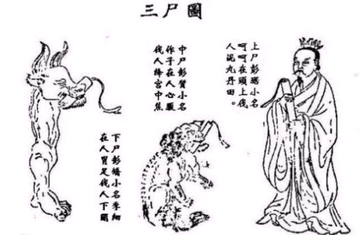 三尸圖
上尸彭小名
呵呵在頭上伐
人泥丸丹田。
中尸彭質小名
作子在人心腹
伐人絳宮中焦
下尸彭矯小名季細
在人胃足伐人下關